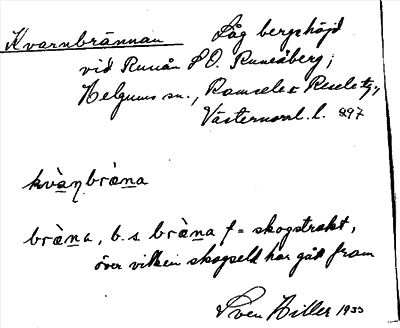 Kvarnbrännan Låg bergshöjd
vid Runån S O. Runsåberg;
Helgums sn., Ramsele o Resele tg.,
Västernorrl. l. 897
kvà̱ṇbrä̀na
brä̀na, b. s. brä̀na f = skogstrakt,
över vilken skogseld har gått fram
Sven Hiller 1933